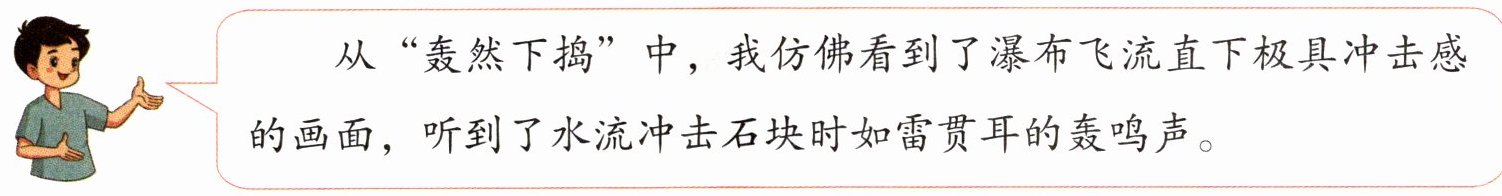 从“轰然下捣”中，我仿佛看到了瀑布飞流直下极具冲击感
的画面，听到了水流冲击石块时如雷贯耳的轰鸣声。